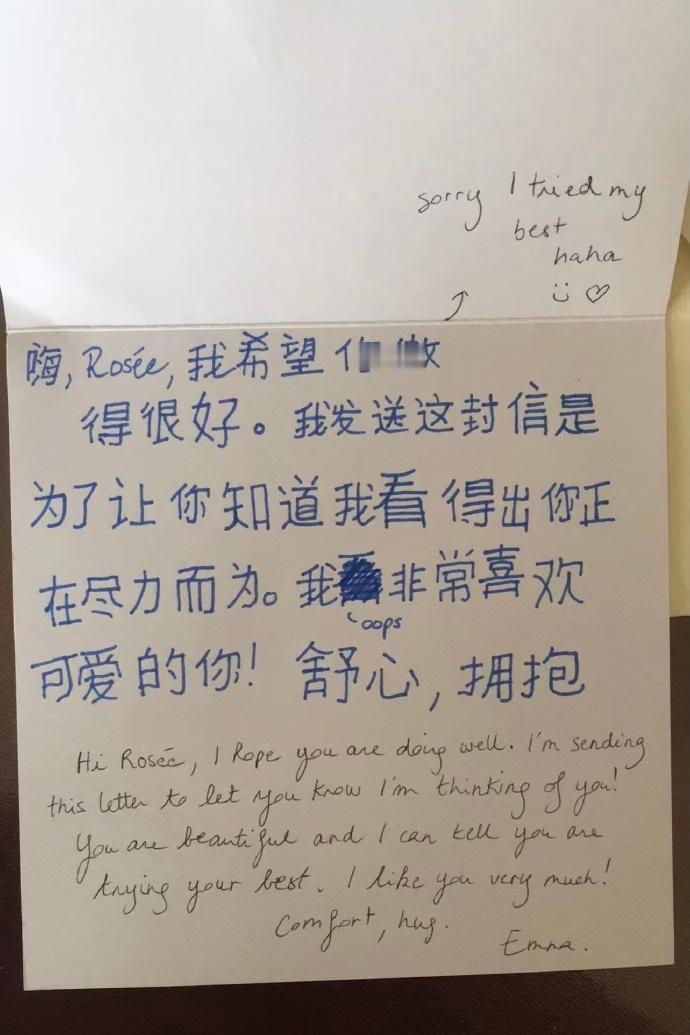 sorry I tried my
best
haha
嗨, Rosée, 我希望
得很好。我发送这封信是
为了让你知道我看得出你正
在尽力而为。我非常喜欢
oops
可爱的你! 舒心, 拥抱
Hi Rosée, I hope you are doing well. I'm sending
this letter to let you know I'm thinking of you!
You are beautiful and I can tell you are
trying your best. I like you very much!
Comfort, hug.
Emma.